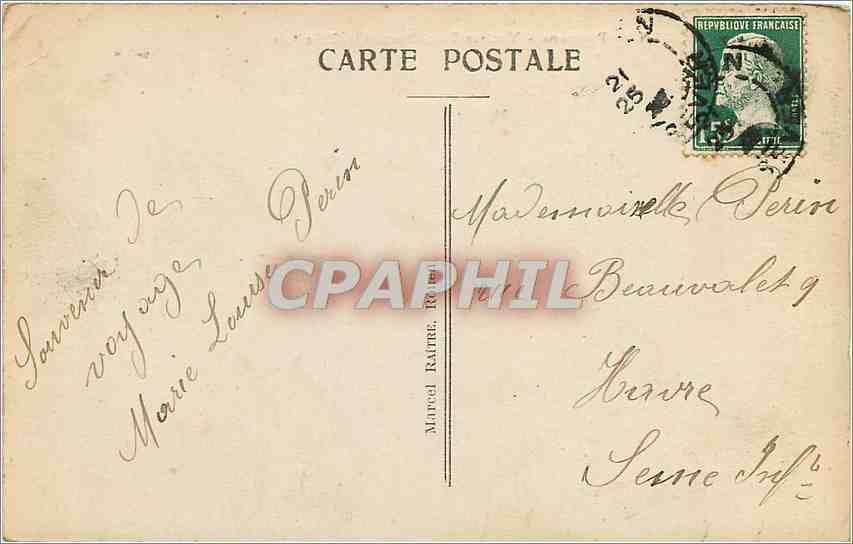 CARTE POSTALE
REPVBLIQUE FRANÇAISE
21
25
15
Souvenir de
voyage
Marie Louise Perin
CPAPHIL
Marcel RAÎTRE, Rouen
Mademoiselle Perin
rue Beauvalet 9
Havre
Seine Infre